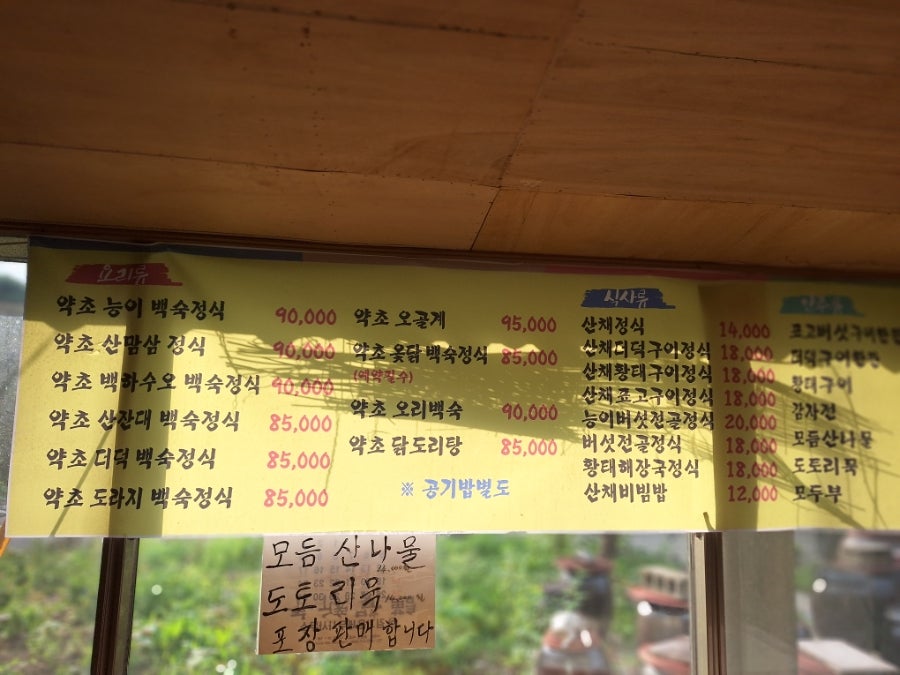 요리류
약초 능이 백숙정식 90,000
약초 산맘삼 정식 90,000
약초 백하수오 백숙정식 90,000
약초 산잔대 백숙정식 85,000
약초 더덕 백숙정식 85,000
약초 도라지 백숙정식 85,000
약초 오골계 95,000
약초 옻닭 백숙정식 85,000
(예약필수)
약초 오리백숙 90,000
약초 닭도리탕 85,000
※ 공기밥별도
식사류
산채정식 14,000
산채더덕구이정식 18,000
산채황태구이정식 18,000
산채표고구이정식 18,000
능이버섯전골정식 20,000
버섯전골정식 18,000
황태해장국정식 18,000
산채비빔밥 12,000
표고버섯구이한판
더덕구이한판
황태구이
감자전
모듬산나물
도토리묵
모두부
모듬 산나물
도토리묵
포장 판매 합니다